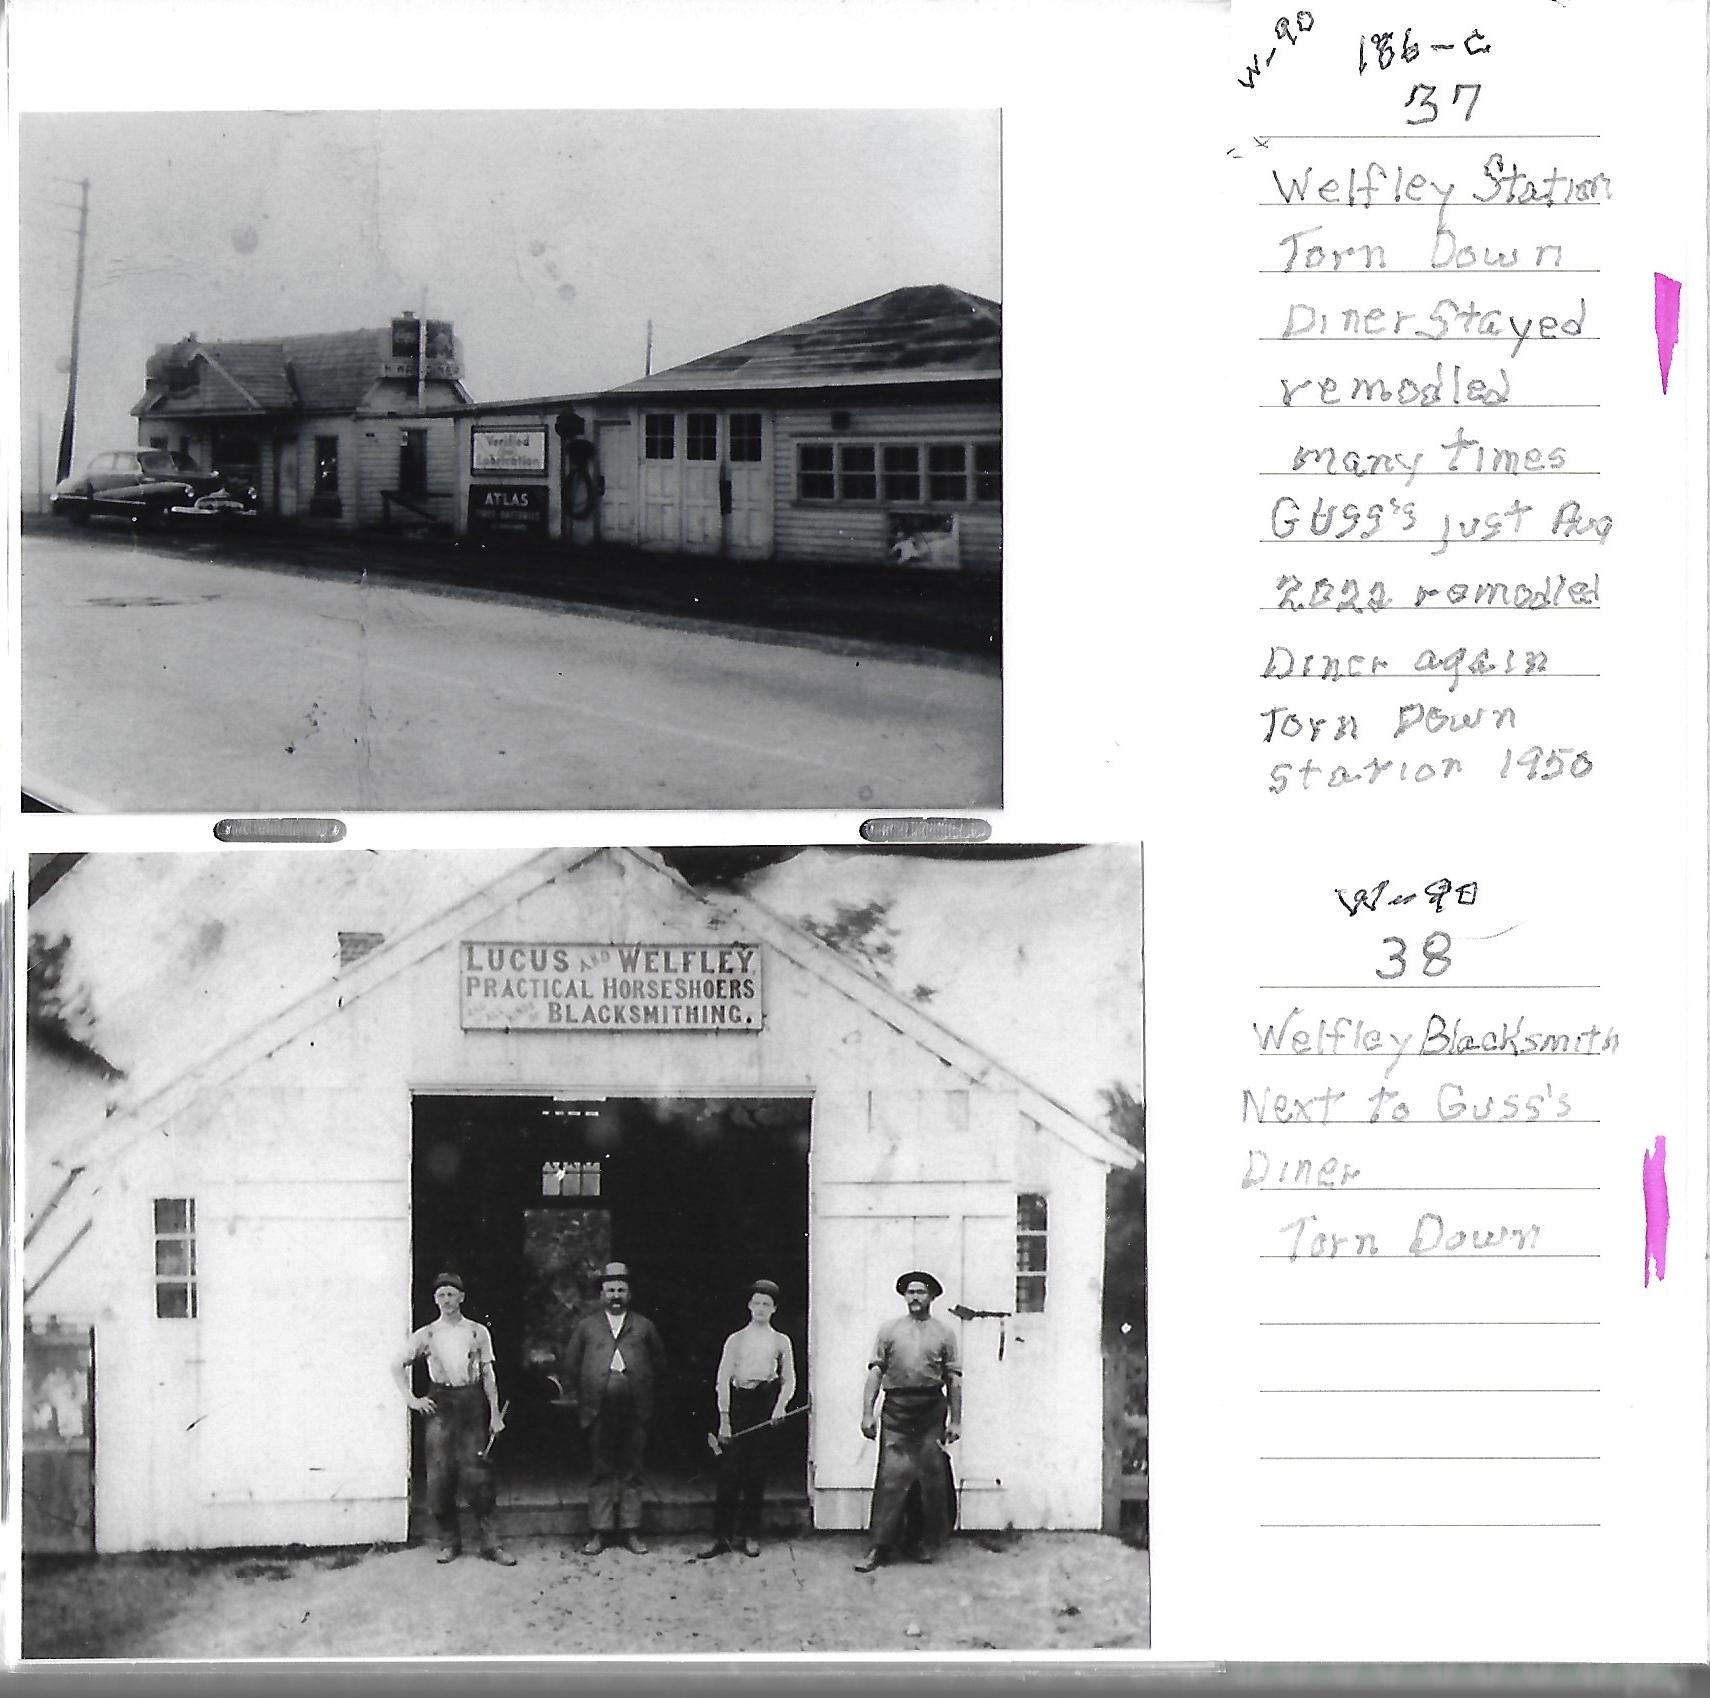 W-90
186-C
37
Welfley Station
Torn Down
Diner Stayed
remodled
many times
Guss's just Aug
2022 remodled
Diner again
Torn Down
Station 1950
Verified
Lubrication
ATLAS
W-90
38
Welfley Blacksmith
Next to Guss's
Diner
Torn Down
LUCUS AND WELFLEY,
PRACTICAL HORSESHOERS
BLACKSMITHING.